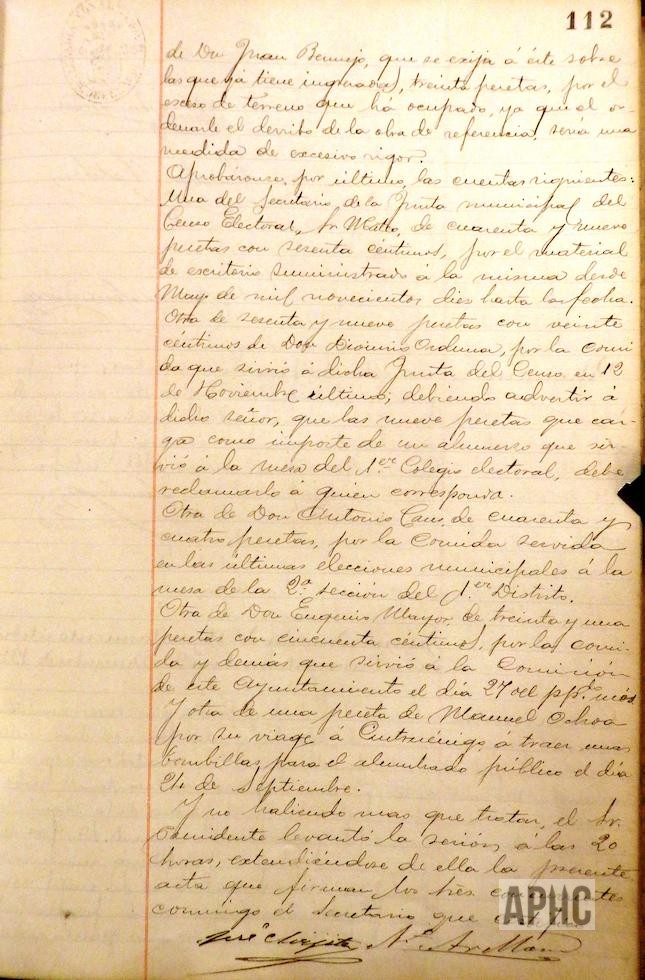 112
de Don Juan Bermejo, que se exija á éste sobre
las que já tiene ingresadas), treinta pesetas, por el
exceso de terreno que há ocupado, ya que el or-
denarle el derribo de la obra de referencia, seria una
medida de excesivo rigor.
Aprobáronse, por último, las cuentas siguientes:
Una del Secretario, de la Junta municipal del
Censo Electoral, Sr. Mateo, de cuarenta y nueve
pesetas con sesenta céntimos, por el material
de escritorio suministrado á la misma desde
Mayo de mil novecientos diez hasta la fecha.
Otra de sesenta y nueve pesetas con veinte
céntimos de Don Dionisio Orduna, por la comi
da que sirvió á dicha Junta del Censo en 12
de Noviembre último; debiendo advertir á
dicho señor, que las nueve pesetas que car-
ga como importe de un almuerzo que sir-
vió á la mesa del 1er. Colegio electoral, debe
reclamarlo á quien corresponda.
Otra de Don Antonio de cuarenta y
cuatro pesetas, por la comida servida
en las últimas elecciones municipales á la
mesa de la 2ª sección del 1er Distrito.
Otra de Don Eugenio Mayor, de treinta y una
pesetas con cincuenta céntimos, por la comi-
da y demás que sirvió á la Comisión
de este Ayuntamiento el día 27 del
Y otra de una peseta de Manuel Ochoa
por su viage á Cintruénigo, á traer unas
bombillas para el alumbrado público el día
24 de septiembre.
Y no habiendo mas que tratar, el Sr.
Presidente levantó la sesión á las 20
horas, extendiéndose de ella la presente
acta que firman los tres
conmigo el Secretario que
APHC